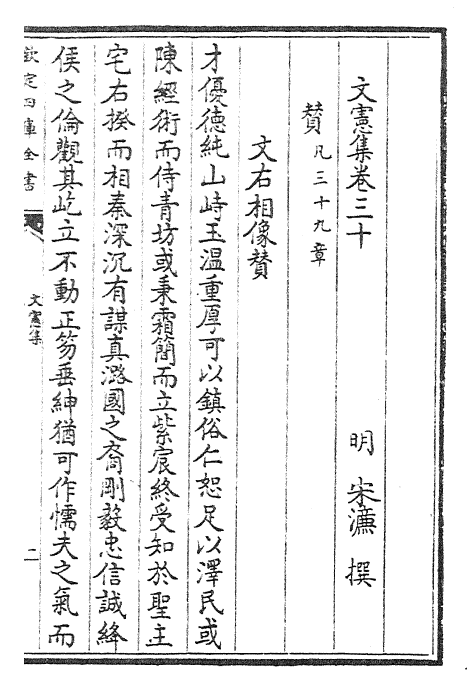 文憲集卷三十
明 宋濂 撰
贊凡三十九章
文右相像贊
才優德純山峙玉溫重厚可以鎮俗仁恕足以澤民或
陳經術而侍青坊或秉霜簡而立紫宸終受知於聖主
宅右揆而相秦深沉有謀真潞國之裔剛毅忠信誠絳
侯之倫觀其屹立不動正笏垂紳猶可作懦夫之氣而
欽定四庫全書
文憲集
二